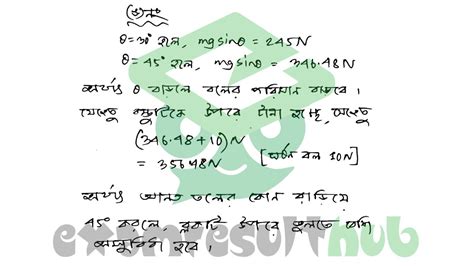 θ=30° হলে, mgsinθ = 245N
θ = 45° হলে, mgsinθ = 346.48N
অর্থাৎ θ বাড়লে বলের পরিমান বাড়বে।
যেহেতু বস্তুটিকে উপরে টানা হচ্ছে, সেহেতু
(346.48+10)N
= 356.48N [ঘর্ষন বল 10N]
অর্থাৎ আনত তলের কোন বাড়িয়ে
45° করলে, ব্লকটি উপরে তুলতে বেশি
অসুবিধা হবে।
examresulthub